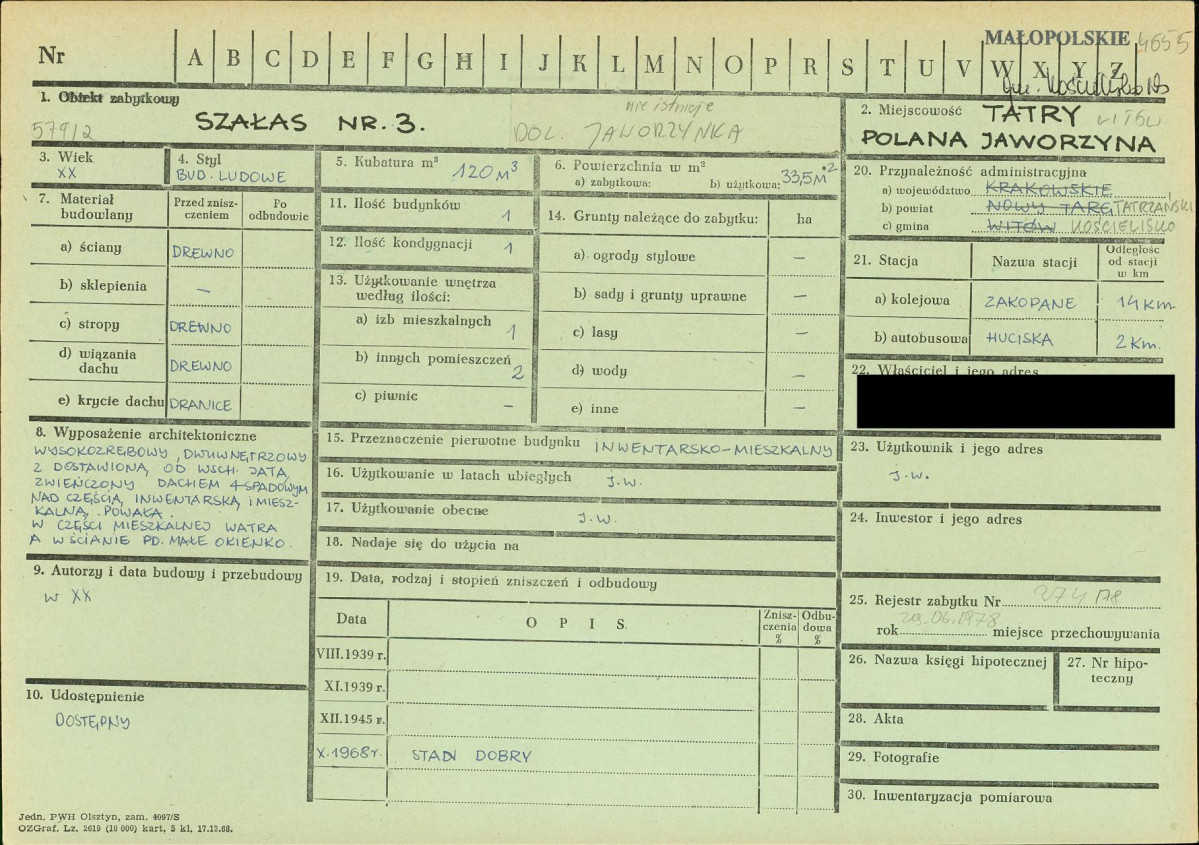 MAŁOPOLSKIE 4655
Nr A B C D E F G H I J K L M N O P R S T U V W X Y Z
1. Obiekt zabytkowy
nie istnieje
579/2
SZAŁAS NR. 3.
DOL. JAWORZYNKA
2. Miejscowość TATRY WITÓW
POLANA JAWORZYNA
3. Wiek
XX
4. Styl
BUD. LUDOWE
5. Kubatura m³
120 M³
6. Powierzchnia w m²
a) zabytkowa: b) użytkowa: 33,5 M²
7. Materiał budowlany
Przed zniszczeniem
Po odbudowie
a) ściany DREWNO
b) sklepienia –
c) stropy DREWNO
d) wiązania dachu DREWNO
e) krycie dachu DRANICE
8. Wyposażenie architektoniczne
WYSOKOZRĘBOWY, DWUWNĘTRZOWY
Z DOSTAWIONĄ OD WSCH. JATĄ,
ZWIEŃCZONY DACHEM 4-SPADOWYM
NAD CZĘŚCIĄ, INWENTARSKĄ, I MIESZ-
KALNĄ, POWAŁA.
W CZĘŚCI MIESZKALNEJ WATRA
A W ŚCIANIE PD. MAŁE OKIENKO.
9. Autorzy i data budowy i przebudowy
W XX
10. Udostępnienie
DOSTĘPNY
11. Ilość budynków 1
12. Ilość kondygnacji 1
13. Użytkowanie wnętrza według ilości:
a) izb mieszkalnych 1
b) innych pomieszczeń 2
c) piwnic –
14. Grunty należące do zabytku: ha
a) ogrody stylowe –
b) sady i grunty uprawne –
c) lasy –
d) wody –
e) inne –
15. Przeznaczenie pierwotne budynku INWENTARSKO-MIESZKALNY
16. Użytkowanie w latach ubiegłych J.W.
17. Użytkowanie obecne J.W.
18. Nadaje się do użycia na
19. Data, rodzaj i stopień zniszczeń i odbudowy
Data OPIS Zniszczenia % Odbudowa %
VIII.1939 r.
XI.1939 r.
XII.1945 r.
X.1968 r. STAN DOBRY
20. Przynależność administracyjna
a) województwo KRAKOWSKIE
b) powiat NOWY TARG TATRZAŃSKI
c) gmina WITÓW KOŚCIELISKO
21. Stacja Nazwa stacji Odległość od stacji w km
a) kolejowa ZAKOPANE 14 Km
b) autobusowa HUCISKA 2 Km.
22. Właściciel i jego adres
23. Użytkownik i jego adres
J.W.
24. Inwestor i jego adres
25. Rejestr zabytku Nr 274/78
rok 29.06.1978 miejsce przechowywania
26. Nazwa księgi hipotecznej
27. Nr hipoteczny
28. Akta
29. Fotografie
30. Inwentaryzacja pomiarowa
Jedn. PWH Olsztyn, zam. 4097/S
OZGraf. Lz. 2619 (10 000) kart, 5 kl, 17.12.68.